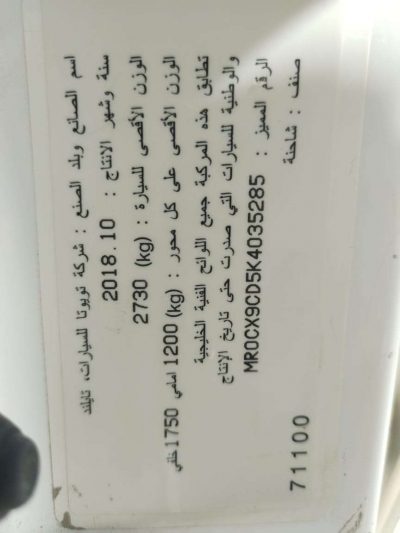 اسم الصانع وبلد الصنع : شركة تويوتا للسيارات، تايلند
سنة وشهر الإنتاج : 2018.10
الوزن الأقصى للسيارة : 2730 (kg)
الوزن الأقصى على كل محور : 1200 (kg) امامي 1750 خلفي
تطابق هذه المركبة جميع اللوائح الفنية الخليجية
والوطنية للسيارات التي صدرت حتى تاريخ الإنتاج
الرقم المميز : MR0CX9CD5K4035285
صنف : شاحنة
71100